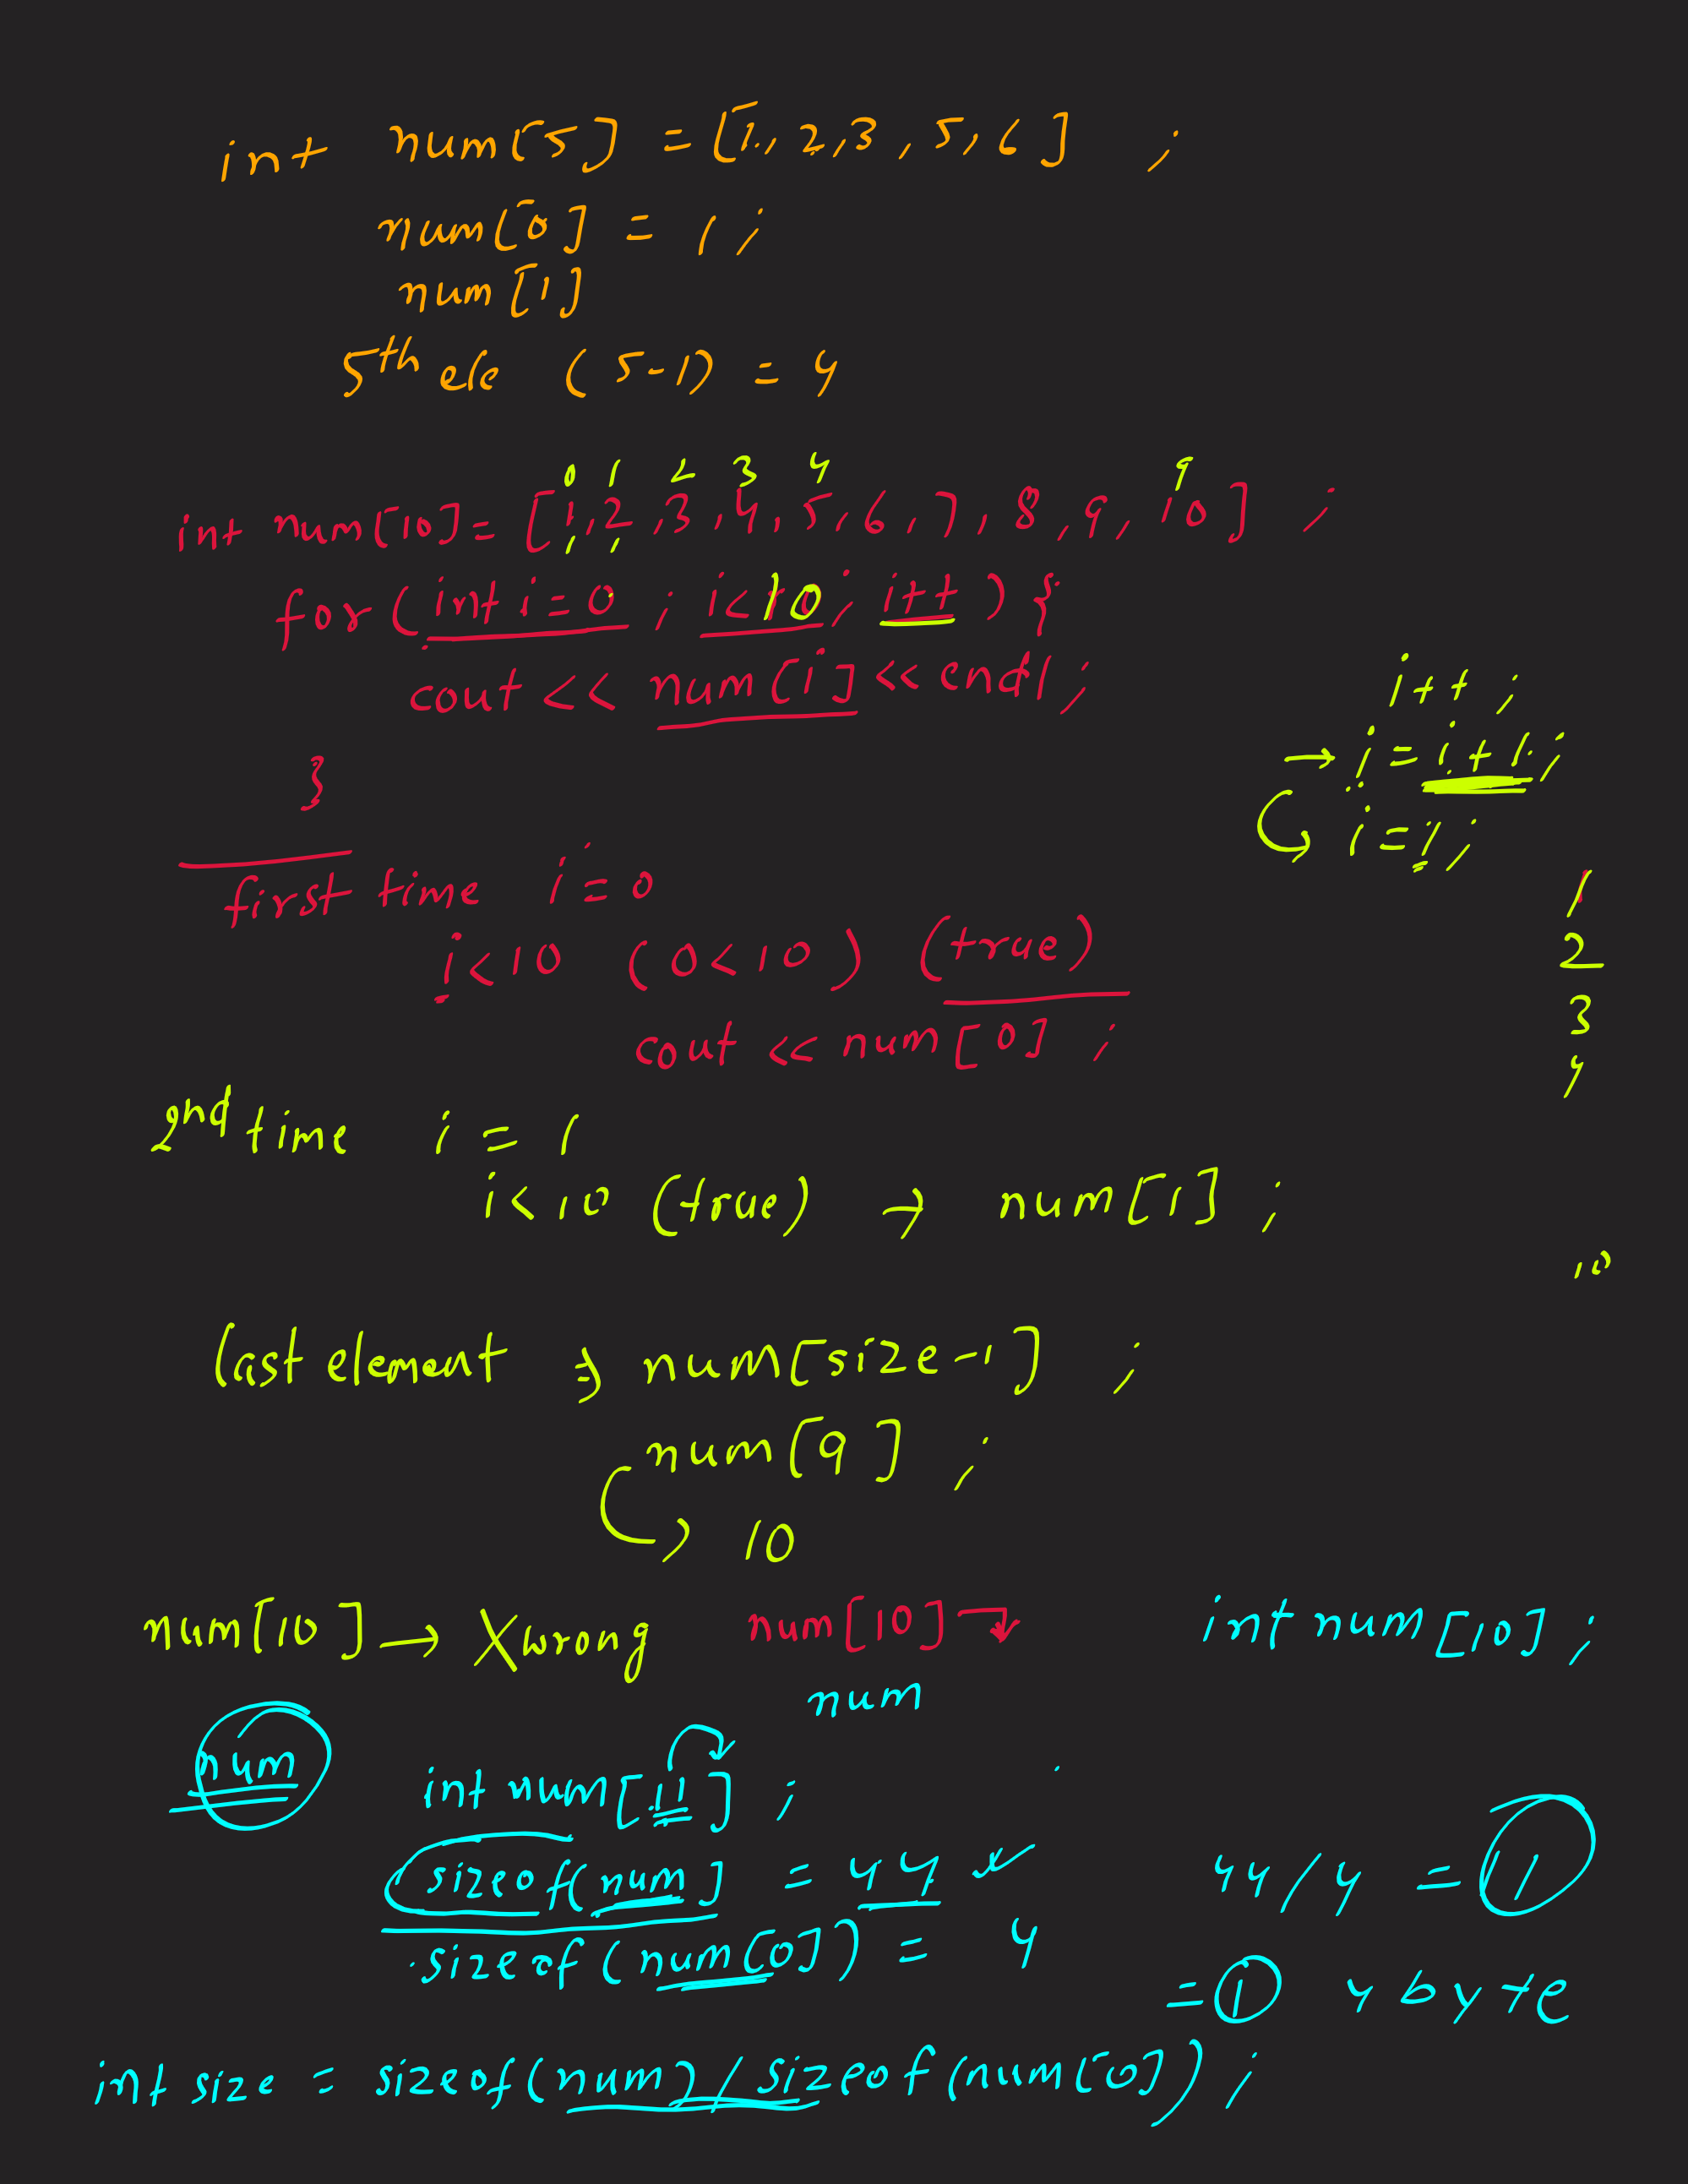 int num[5] = [1, 2,3, 5, 6] ;
num[0] = 1 ;
num[1]
5th ele (5-1) = 4
0 1 2 3 4 9
int num[10] = [1,2,3,4,5,6,7,8,9,10] ;
for (int i=0 ; i<10; i++) {
cout << num[i] << endl ;
}
i++ ;
→ i = i+1 ;
i = 1 ;
first time i=0
i<10 (0<10) (true)
cout << num[0] ;
1
2
3
4
10
2nd time i = 1
i<10 (true) → num[1] ;
last element ⇒ num[size-1] ;
num[9] ;
10
num[10] → X wrong
num[10] →
int num[10] ;
num
num
int num[11] ;
sizeof(num] = 44
44/4 = 11
sizeof(num[0]) = 4
= 1 4 byte
int size = sizeof(num)/sizeof(num[0]) ;